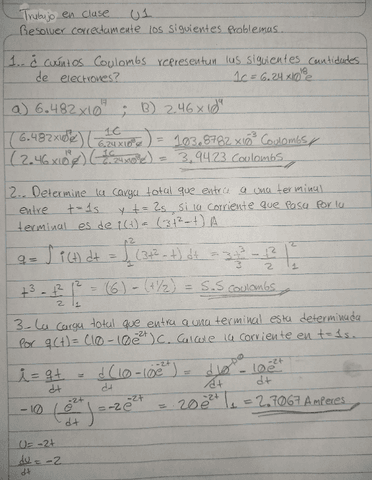 Trabajo en clase U1
Resolver correctamente los siguientes problemas.
1.- ¿Cuántos Coulombs representan las siguientes cantidades
de electrones? 1C = 6.24x10¹⁸ē
a) 6.482x10¹⁷ ; B) 2.46x10¹⁹
(6.482x10¹⁷ē)(1C / 6.24x10¹⁸ē) = 103.8782 x10⁻³ Coulombs
(2.46x10¹⁹ē)(1C / 6.24x10¹⁸ē) = 3.9423 Coulombs
2.- Determine la carga total que entra a una terminal
entre t=1s y t=2s, si la corriente que pasa por la
terminal es de i(t) = (3t²-t) A
q = ∫ i(t) dt = ∫₁² (3t²-t) dt = 3t³/3 - t²/2 |₁²
t³ - t²/2 |₁² = (6) - (1/2) = 5.5 coulombs
3.- La carga total que entra a una terminal esta determinada
por q(t) = (10-10e⁻²ᵗ)C. Calcule la corriente en t=1s.
i = qt/dt = d(10-10e⁻²ᵗ)/dt = d10/dt - 10e⁻²ᵗ/dt
-10 (e⁻²ᵗ/dt) = -2e⁻²ᵗ = 20e⁻²ᵗ |₁ = 2.7067 Amperes
U = -2t
du/dt = -2